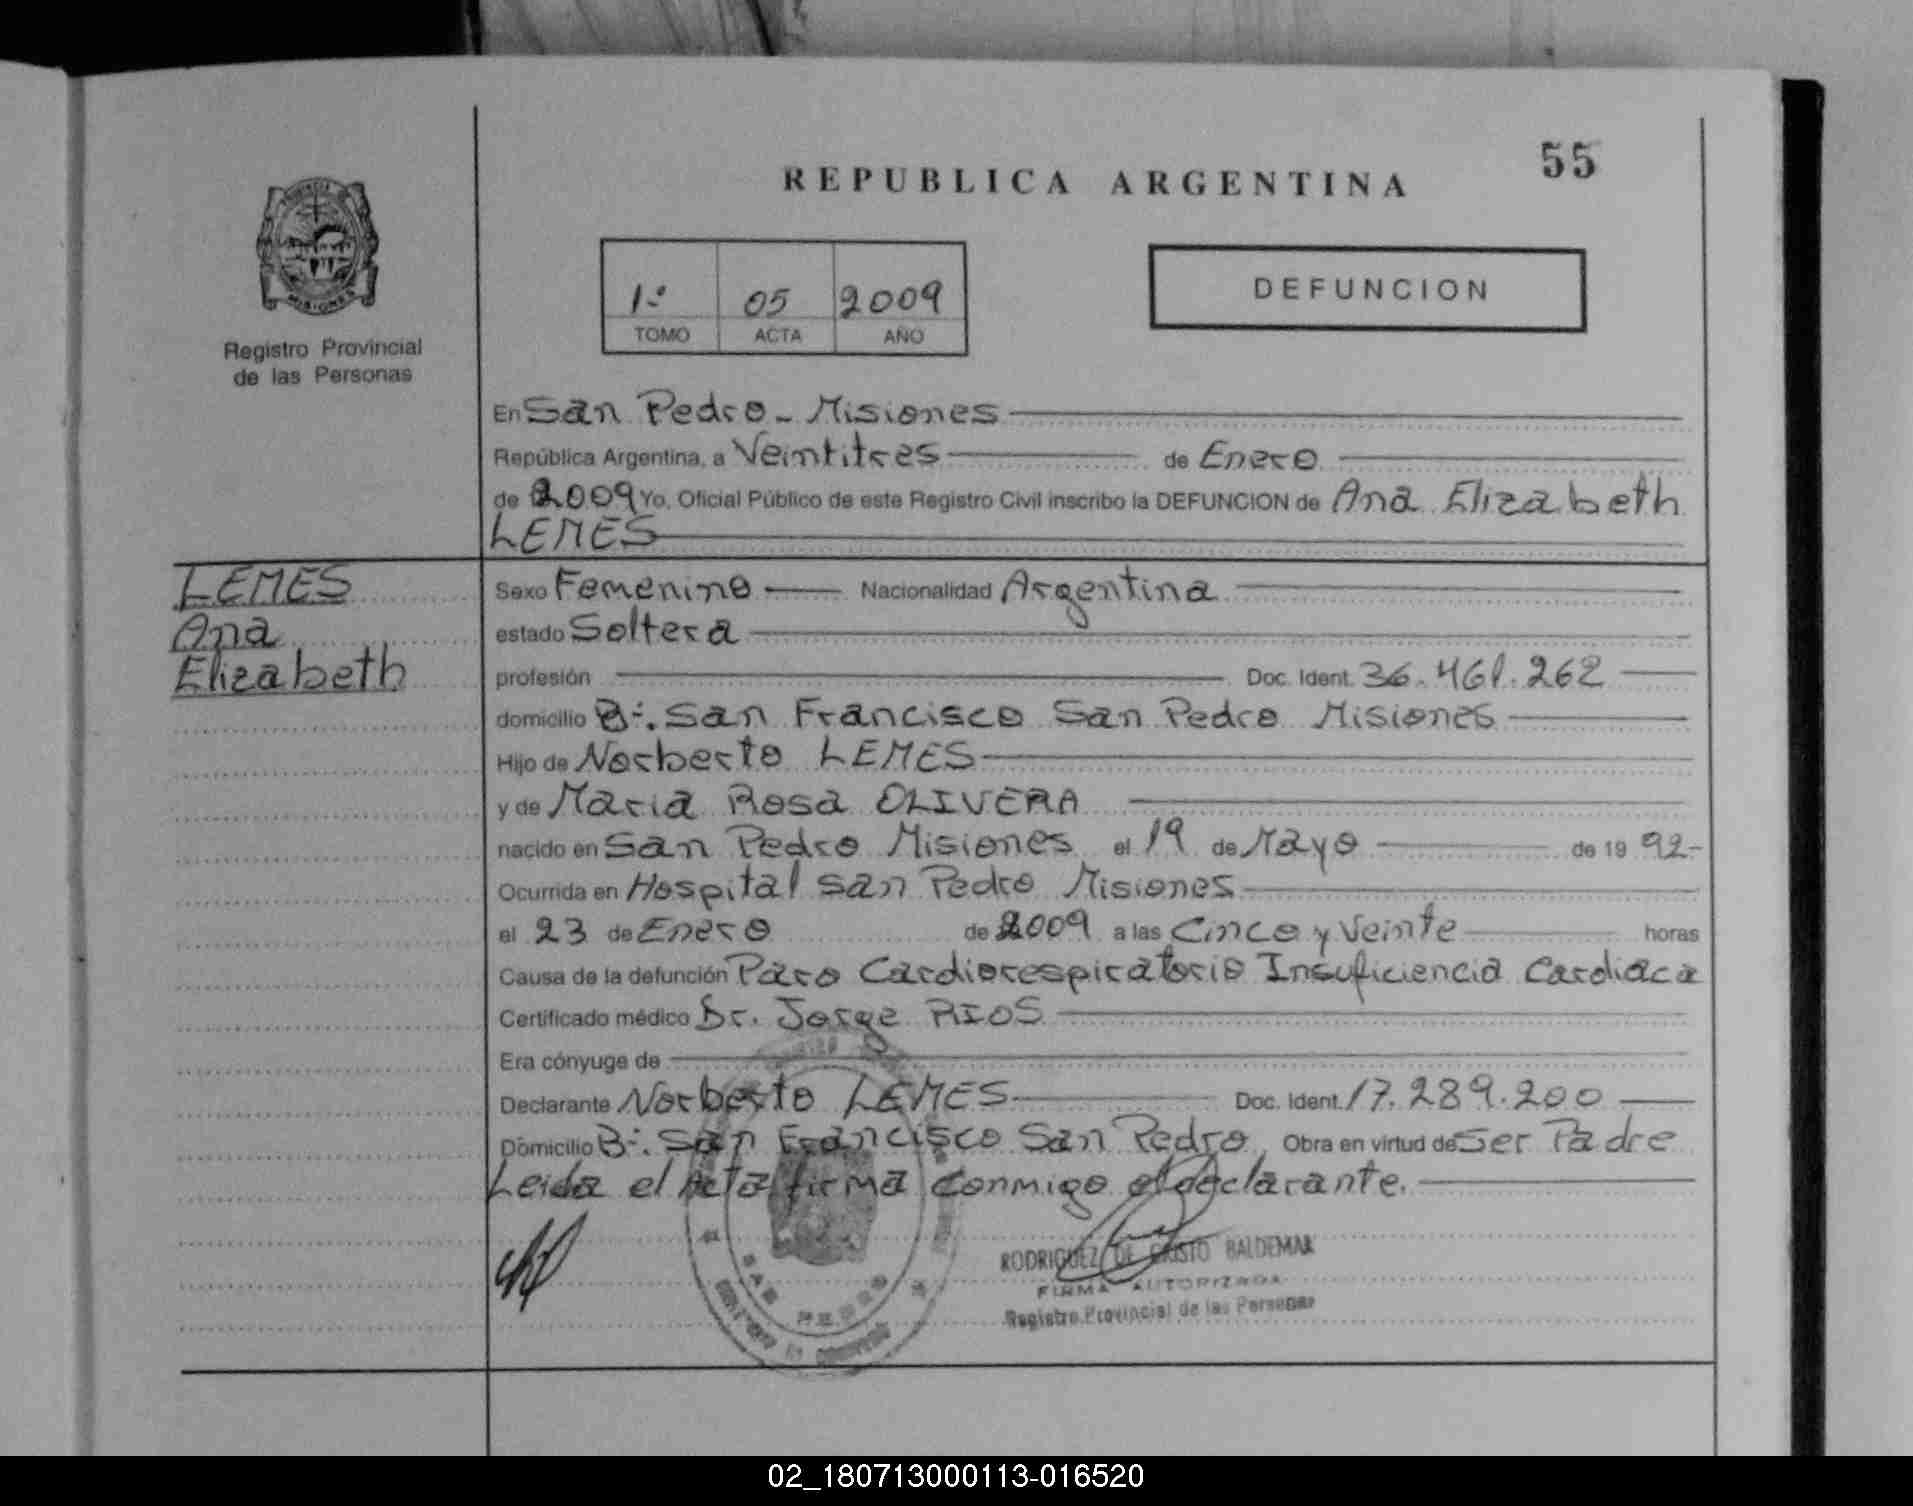 55
REPUBLICA ARGENTINA
1º 05 2009
TOMO ACTA AÑO
DEFUNCION
MISIONES
Registro Provincial
de las Personas
En San Pedro - Misiones
República Argentina, a Veintitres de Enero
de 2009 Yo, Oficial Público de este Registro Civil inscribo la DEFUNCION de Ana Elizabeth
LEMES
LEMES
Ana
Elizabeth
Sexo Femenino Nacionalidad Argentina
estado Soltera
profesión Doc. Ident. 36.461.262
domicilio Bº. San Francisco San Pedro Misiones
Hijo de Norberto LEMES
y de Maria Rosa OLIVERA
nacido en San Pedro Misiones el 19 de Mayo de 19 92-
Ocurrida en Hospital San Pedro Misiones
el 23 de Enero de 2009 a las Cinco y Veinte horas
Causa de la defunción Paro Cardiorespiratorio Insuficiencia Cardiaca
Certificado médico Dr. Jorge RIOS
Era cónyuge de
Declarante Norberto LEMES Doc. Ident. 17.289.200
Domicilio Bº. San Francisco San Pedro Obra en virtud de Ser Padre
Leida el Acta firma conmigo el declarante.
RODRIGUEZ DE CRISTO BALDEMAR
FIRMA AUTORIZADA
Registro Provincial de las Personas
SAN PEDRO
02_180713000113-016520